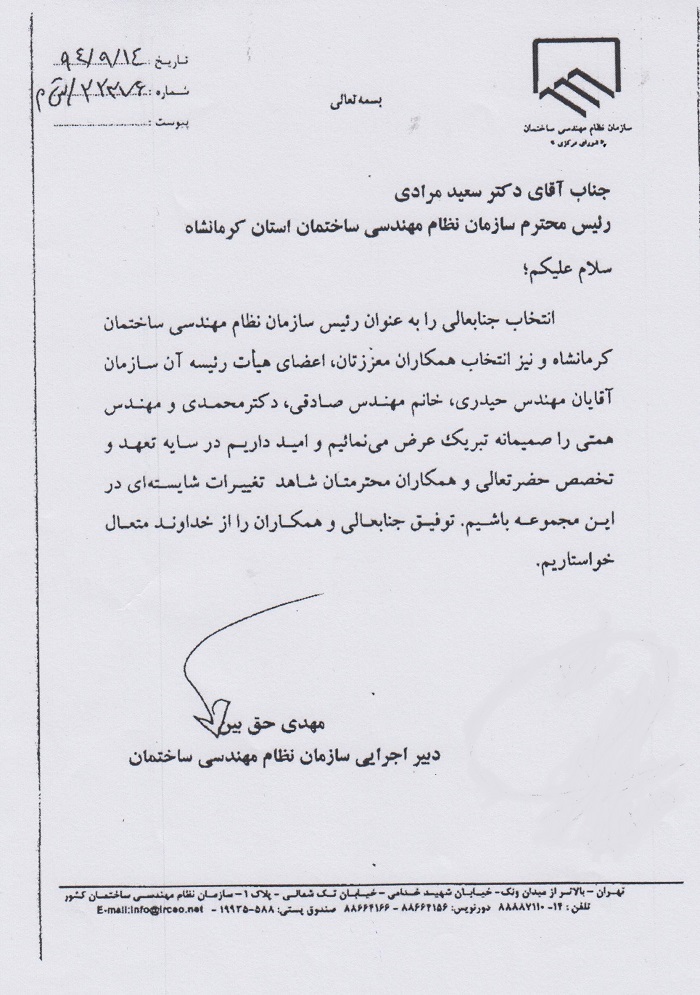 تاریخ: ۹۴/۹/۱۴
شماره: ۲۲۲۷۶/ش م
پیوست:
بسمه تعالی
سازمان نظام مهندسی ساختمان
«شورای مرکزی»
جناب آقای دکتر سعید مرادی
رئیس محترم سازمان نظام مهندسی ساختمان استان کرمانشاه
سلام علیکم؛
انتخاب جنابعالی را به عنوان رئیس سازمان نظام مهندسی ساختمان
کرمانشاه و نیز انتخاب همکاران معززتان، اعضای هیأت رئیسه آن سازمان
آقایان مهندس حیدری، خانم مهندس صادقی، دکترمحمدی و مهندس
همتی را صمیمانه تبریک عرض می‌نمائیم و امید داریم در سایه تعهد و
تخصص حضرتعالی و همکاران محترمتان شاهد تغییرات شایسته‌ای در
این مجموعه باشیم. توفیق جنابعالی و همکاران را از خداوند متعال
خواستاریم.
مهدی حق بین
دبیر اجرایی سازمان نظام مهندسی ساختمان
تهران – بالاتر از میدان ونک- خیابان شهید خدامی – خیابان تک شمالی – پلاک ۱ – سازمان نظام مهندسی ساختمان کشور
تلفن: ۱۴- ۸۸۸۸۷۱۱۰ دورنویس: ۸۸۶۶۴۱۵۶ – ۸۸۶۶۴۱۶۶ صندوق پستی: ۵۸۸–۱۹۹۳۵ - E-mail:info@irceo.net